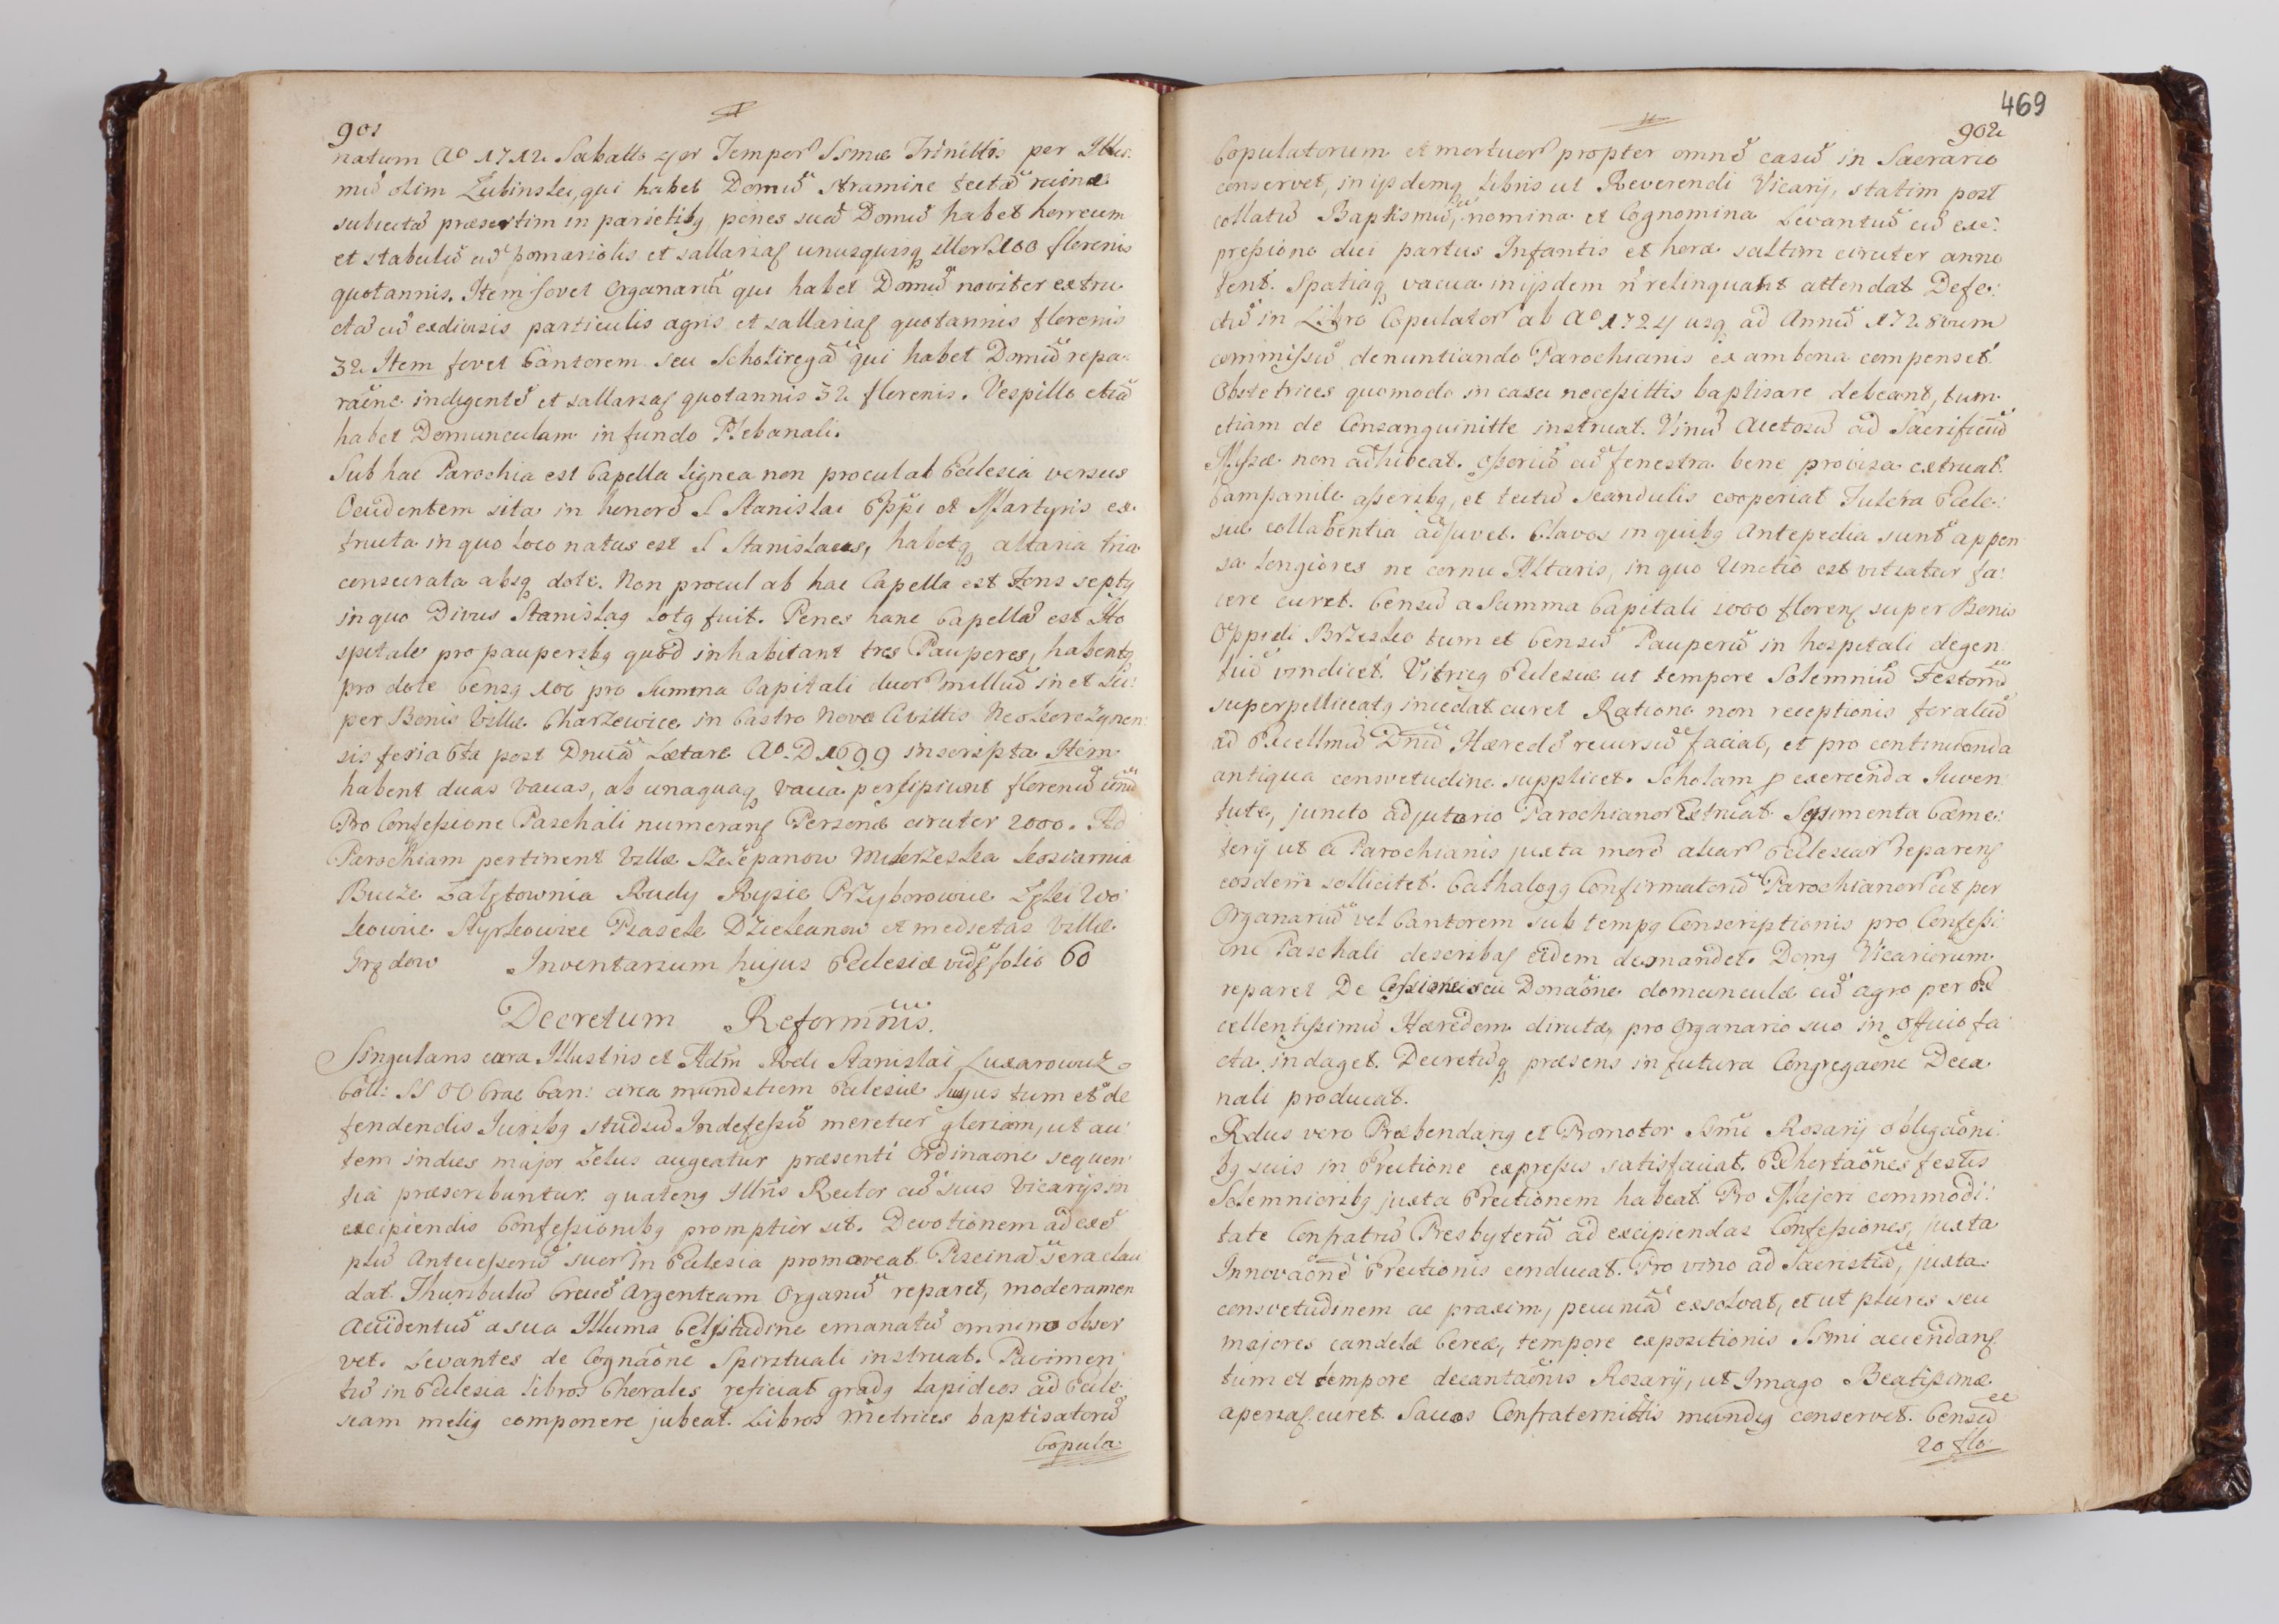 901
natum Aō 1712 Sabatto 4or Tempor Ssmæ Trinittis per Illus:
mū olim Łubinski, qui habet Domū stramine tectā ruinæ
subiectā præsertim in parietibꝫ penes suā Domū habet horreum
et stabulū cū pomariolis et sallariaʃ unusquisqꝫ illor 100 florenis
quotannis. Item fovet Organariū qui habet Domū noviter extru
ctā cū exdivisis particulis agris et sallariaʃ quotannis florenis
32. Item fovet Cantorem seu Scholiregā qui habet Domū repa:
raōne indigentē et sallariaʃ quotannis 32 florenis. Vespillo etiā
habet Domunculam in fundo Plebanali.
Sub hac Parochia est Capella lignea non procul ab Ecclesia versus
Occidentem sita in honorē S Stanislai Eppi et Martyris ex:
tructa in quo loco natus est S Stanislaus, habetqꝫ altaria tria
consecrata absqꝫ dote. Non procul ab hac Capella est Fons septꝫ
in quo Divus Stanislaꝫ lotꝫ fuit. Penes hanc Capellā est Ho
spitale pro pauperibꝫ quod inhabitant tres Pauperes, habentqꝫ
pro dote Censꝫ 100 pro Summa Capitali duor millium in et su:
per Bonis Villæ Charzewice in Castro Novæ Civittis Neokorczynen:
sis feria 6ta post Dnicā Lætare Aō D 1699 inscripta Item
habent duas vacas, ab unaquaqꝫ vaca percipiunt florenū unū
Pro Confessione Paschali numeranʃ Personæ circiter 2000. Ad
Parochiam pertinent Villæ Szczepanow Mokrzeska Kosciarnia
Bucze Załętownia Rudy Rysie Przyborowice Łęki Wo
kowice Styrkowiec Piasek Dziekanow et medietas Villæ
Grędow Inventarium hujus Ecclesiæ vidʃ folio 60
Decretum Reformnis.
Singularis cura Illustris et Adm Rdi Stanislai Luxarowicz
Coll: SS OO Crac Can: circa munditiem Ecclesiæ hujus tum et de
fendendis Juribꝫ studiū Indefessū meretur gloriam, ut au:
tem indies major zelus augeatur præsenti Ordinaone sequen
tia præscribuntur. quatenꝫ Illris Rector cū suis Vicarijs in
excipiendis Confessionibꝫ promptior sit. Devotionem ad exē
plū Antecessorū suor in Ecclesia promoveat. Piscinā sera clau
dat. Thuribulū Crucē Argenteam Organū reparet, moderamen
Accidentiū a sua Illuma Celsitudine emanatū omnino obser
vet. Levantes de Cognaōne Spirituali instruat. Pavimen
tū in Ecclesia libros Chorales reficiat gradꝫ lapideos ad Eccle:
siam meliꝫ componere jubeat. Libros Metrices baptisatorū
Copula
469
902
Copulatorum et mortuor propter omnē casū in Sacrario
conservet, in ijsdemqꝫ Libris ut Reverendi Vicarij, statim post
collatū Baptismū, nomina et Cognomina Levantiū cū exe:
pressione diei partus Infantis et horæ saltim circiter anno
tent. Spatiaqꝫ vacua in ijsdem n relinquant attendat Defe:
ctū in Libro Copulator ab Aō 1724 usqꝫ ad Annū 1728vum
commissū denuntiando Parochianis ex ambona compenset.
Obstetrices quomodo in casu necessittis baptisare debeant, tum
etiam de Consanguinitte instruat. Vinū Acetosū ad Sacrificiū
Missæ non adhibeat. Ossoriū cū fenestra bene provisa extruat.
Campanile asseribꝫ, et tectū scandulis cooperiat Fulcra Eccle:
siæ collabentia adjuvet. Clavos in quibꝫ Antepedia sunt appen
sa longiores ne cornu Altaris, in quo Unctio est vitiatur fa:
cere curet. Censū a Summa Capitali 1000 florenʃ super Bonis
Oppidi Brzesko tum et Censū Pauperū in hospitali degen
tiū vindicet. Vitricꝫ Ecclesiæ ut tempore Solemniū Festorū
superpelliceatꝫ incedat curet Ratione non receptionis feraliū
ad Excellmū Dnū Hæredē recursū faciat, et pro continuanda
antiqua consvetudine supplicet. Scholam ꝑ exercenda Juven
tute, juncto adjutorio Parochianor Extruat. Sepimenta Cæme:
terij ut a Parochianis juxta morē aliar Ecclesiar reparenʃ
eosdem sollicitet. Cathalogꝫ Confirmatorū Parochianor ut per
Organariū vel Cantorem sub tempꝫ Conscriptionis pro Confessi:
one Paschali describaʃ eidem demandet. Domꝫ Vicariorum
reparet De Cessione seu Donaōne domunculæ cū agro per Ex
cellentissimū Hæredem dirutæ, pro Organario suo in Officio fa
cta indaget. Decretūqꝫ præsens in futura Congregaone Deca
nali producat.
Rdus vero Præbendariꝫ et Promotor Ssmi Rosarij obligaōni:
bꝫ suis in Erectione expressis satisfaciat. Exhortaōnes festis
Solemnioribꝫ juxta Erectionem habeat. Pro Majori commodi:
tate Confratrū Presbyterū ad excipiendas Confessiones, juxta
Innovaōnē Erectionis conducat. Pro vino ad Sacristiā, juxta
consvetudinem ac praxim, pecuniā exsolvat, et ut plures seu
majores candelæ Cereæ, tempore expositionis Ssmi accendanʃ
tum et tempore decantaōnis Rosarij, ut Imago Beatissimæ
aperiaʃ curet. Saccos Confraternittis mundiꝫ conservet. Censū
20 flo: